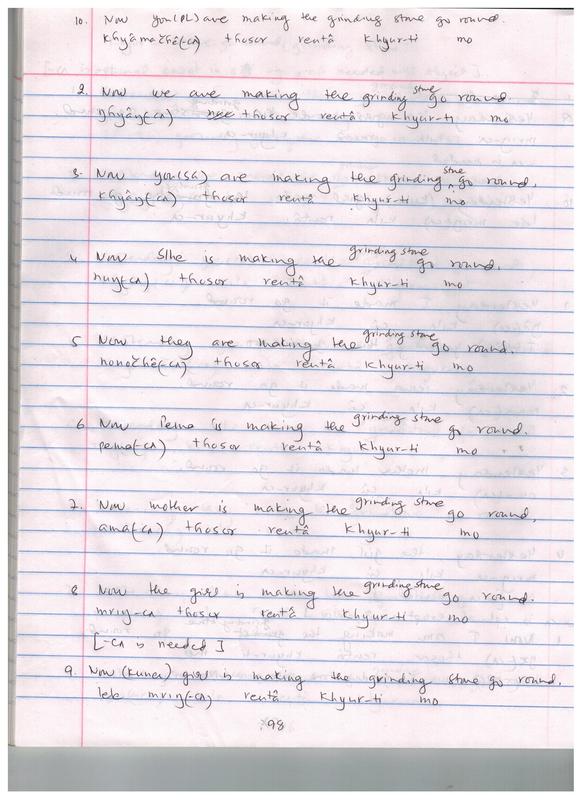 10. Now you(PL) are making the grinding stone go round.
khyâmažhê(-cʌ) thosor rentâ khyur-ti mo
2. Now we are making the grinding stone go round.
ŋhyâŋ(-cʌ) thosor rentâ khyur-ti mo
3. Now you(SG) are making the grinding stone go round.
khyâŋ(-cʌ) thosor rentâ khyur-ti mo
4 Now S/he is making the grinding stone go round.
huŋ(-cʌ) thosor rentâ khyur-ti mo
5 Now they are making the grinding stone go round.
honožhê(-cʌ) thosor rentâ khyur-ti mo
6. Now Pema is making the grinding stone go round.
pema(-cʌ) thosor rentâ khyur-ti mo
7. Now mother is making the grinding stone go round.
ama(-cʌ) thosor rentâ khyur-ti mo
8 Now the girl is making the grinding stone go round.
mriŋ-cʌ thosor rentâ khyur-ti mo
[-cʌ is needed]
9. Now (kuna) girl is making the grinding stone go round.
mriŋ(-cʌ) rentâ khyur-ti mo
98